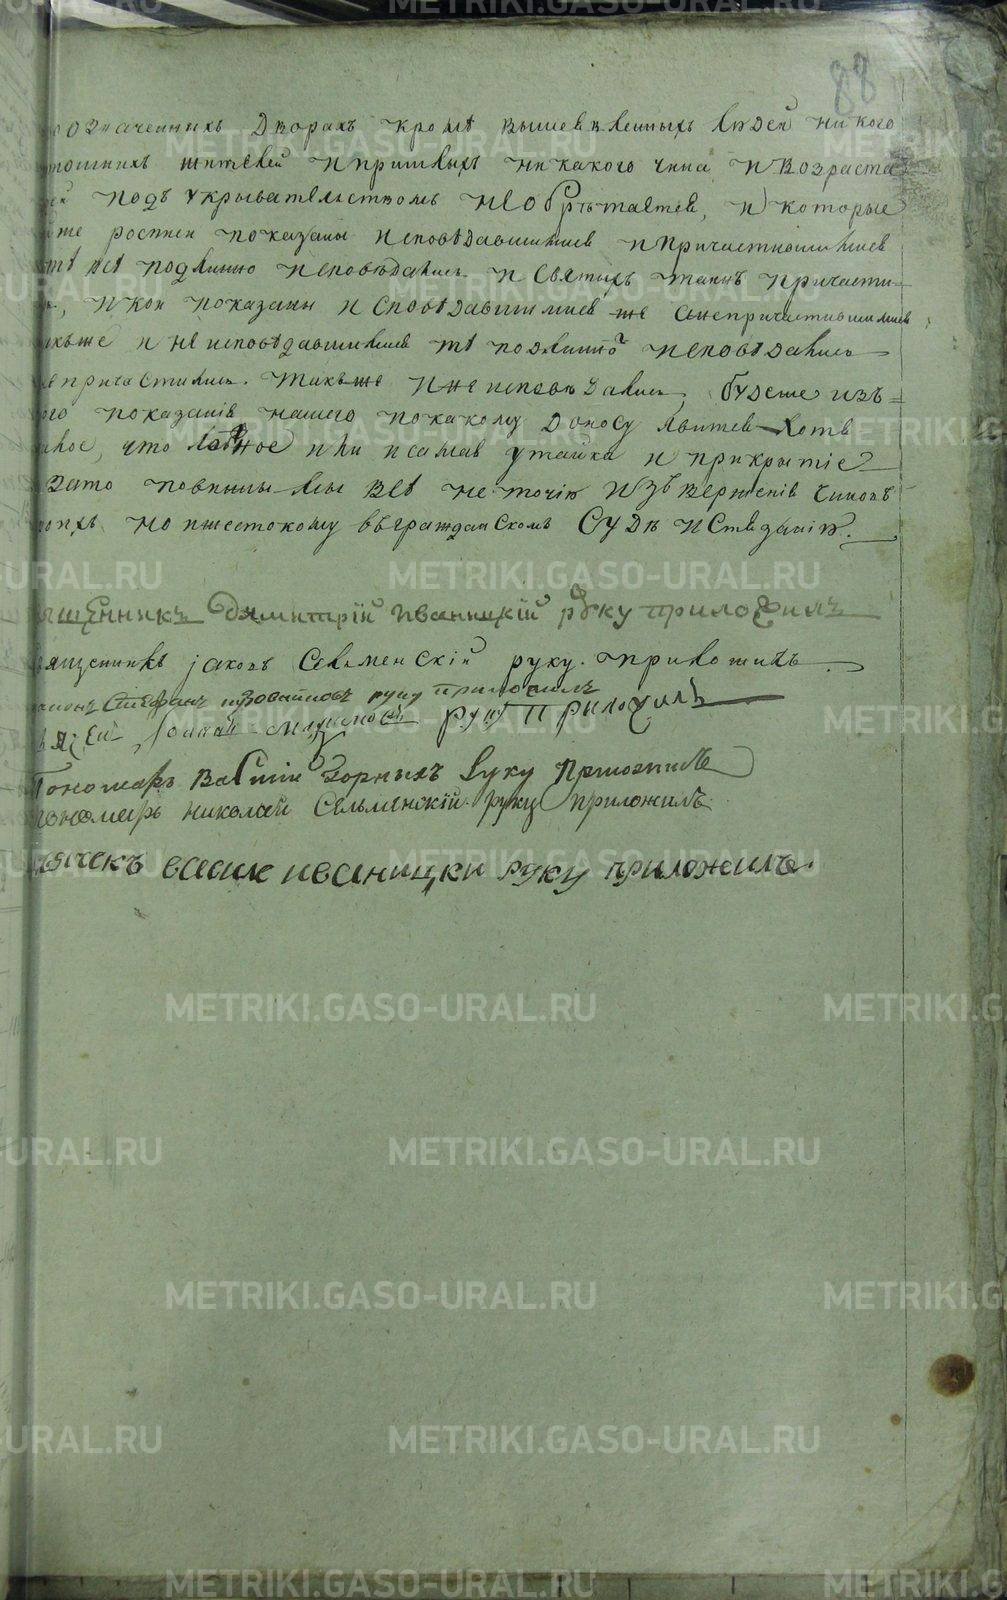 88
означенныхъ дворахъ кромѣ вышевявленныхъ людей никого
жителей и пришлыхъ никакого чина и возраста
подъ укрывательствомъ необрѣтается, и которые
росписи показаны исповѣдавшимися и причастившимися
всѣ подлинно исповѣдались и святыхъ таинъ причасти-
, и кои показаны исповѣдавшимися же анепричастившимися
и неисповѣдавшимися тѣ подлинно исповѣдались
причастились. такъже и не исповѣдались, будеже изъ
показанія нашего покакому доносу явится хотя
что ложное или и самая утайка и прикрытіе
зато повинны мы всѣ не точію изъверженія чиновъ
но и жестокому въгражданскомъ судѣ истязанію.
Димитрій Иваницкій руку приложилъ
Іаковъ Селменскій руку приложилъ
Стефанъ руку приложилъ
руку приложилъ
Пономарь Василій Зорныхъ руку приложилъ
Пономарь Николай Сельменскій руку приложилъ
Иваницки руку приложилъ.
METRIKI.GASO-URAL.RU